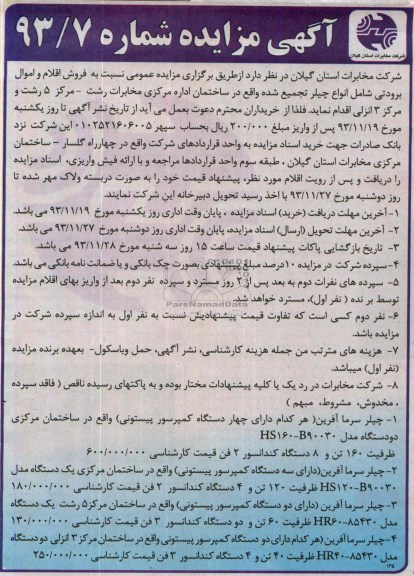 شرکت مخابرات استان گیلان
آگهی مزایده شماره ۹۳/۷
شرکت مخابرات استان گیلان در نظر دارد ازطریق برگزاری مزایده عمومی نسبت به فروش اقلام و اموال
برودتی شامل انواع چیلر تجمیع شده واقع در ساختمان اداره مرکزی مخابرات رشت - مرکز ۵ رشت و
مرکز ۳ انزلی اقدام نماید. فلذا از خریداران محترم دعوت بعمل می آید از تاریخ نشر آگهی تا روز یکشنبه
مورخ ۹۳/۱۱/۱۹ پس از واریز مبلغ ۲۰۰/۰۰۰ ریال بحساب سپهر ۰۱۰۲۵۲۱۶۰۶۰۰۵ این شرکت نزد
بانک صادرات جهت خرید اسناد مزایده به واحد قراردادهای شرکت واقع در چهارراه گلسار - ساختمان
مرکزی مخابرات استان گیلان ، طبقه سوم واحد قراردادها مراجعه و با ارائه فیش واریزی، اسناد مزایده
را دریافت و پس از رویت اقلام مورد نظر، پیشنهاد قیمت خود را به صورت دربسته ولاک مهر شده تا
روز دوشنبه مورخ ۹۳/۱۱/۲۷ با اخذ رسید تحویل دبیرخانه این شرکت نمایند.
۱- آخرین مهلت دریافت (خرید) اسناد مزایده ، پایان وقت اداری روز یکشنبه مورخ ۹۳/۱۱/۱۹ می باشد.
۲- آخرین مهلت تحویل (ارسال) اسناد مزایده، پایان وقت اداری روز دوشنبه مورخ ۹۳/۱۱/۲۷ می باشد.
۳- تاریخ بازگشایی پاکات پیشنهاد قیمت ساعت ۱۵ روز سه شنبه مورخ ۹۳/۱۱/۲۸ می باشد.
۴-سپرده شرکت در مزایده ۱۰درصد مبلغ پیشنهادی بصورت چک بانکی و یا ضمانت نامه بانکی می باشد.
۵- سپرده های نفرات دوم به بعد پس از ۲ روز مسترد و سپرده نفر دوم بعد از واریز بهای اقلام مزایده
توسط برنده ( نفر اول)، مسترد خواهد شد.
۶- نفر دوم کسی است که تفاوت قیمت پیشنهادیش نسبت به نفر اول به اندازه سپرده شرکت در
مزایده باشد.
۷- هزینه های مترتب من جمله هزینه کارشناسی، نشر آگهی، حمل وباسکول- بعهده برنده مزایده
(نفر اول) میباشد.
۸- شرکت مخابرات در رد یک یا کلیه پیشنهادات مختار بوده و به پاکتهای رسیده ناقص ( فاقد سپرده
، مخدوش، مشروط، مبهم )
۱- چیلر سرما آفرین( هر کدام دارای چهار دستگاه کمپرسور پیستونی) واقع در ساختمان مرکزی
دودستگاه مدل HS۱۶۰-B۹۰۰۳۰
ظرفیت ۱۶۰ تن و ۸ دستگاه کندانسور ۲ فن قیمت کارشناسی ۶۰۰/۰۰۰/۰۰۰
۲-چیلر سرما آفرین(دارای سه دستگاه کمپرسور پیستونی) واقع در ساختمان مرکزی یک دستگاه مدل
HS۱۲۰-B۹۰۰۳۰ ظرفیت ۱۲۰ تن و ۴ دستگاه کندانسور ۲ فن قیمت کارشناسی ۱۸۰/۰۰۰/۰۰۰
۳-چیلر سرما آفرین (دارای دو دستگاه کمپرسور پیستونی) واقع در ساختمان مرکز۵ رشت یک دستگاه
مدل HR۶۰-۸۵۴۳۰ ظرفیت ۶۰ تن و دو دستگاه کندانسور ۳ فن قیمت کارشناسی ۱۳۰/۰۰۰/۰۰۰
۴-چیلر سرما آفرین (هر کدام دارای دو دستگاه کمپرسور پیستونی واقع در ساختمان مرکز ۳ انزلی دو دستگاه
مدل HR۴۰-۸۵۴۳۰ ظرفیت ۴۰ تن و ۴ دستگاه کندانسور ۳ فن قیمت کارشناسی ۲۵۰/۰۰۰/۰۰۰
ParsNamadData